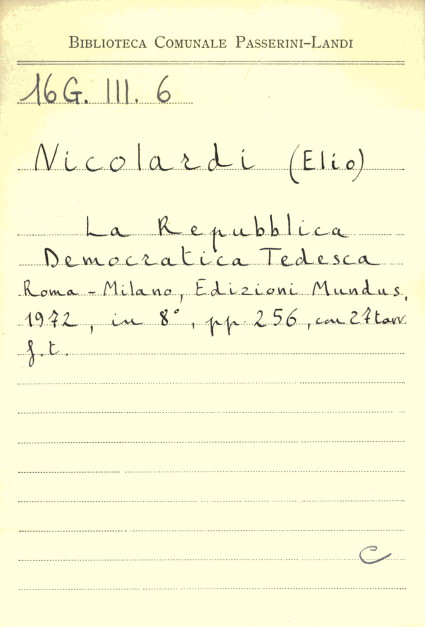 BIBLIOTECA COMUNALE PASSERINI-LANDI
16 G. III. 6
Nicolardi (Elio)
La Repubblica
Democratica Tedesca
Roma - Milano, Edizioni Mundus,
1972, in 8°, pp 256, con 27 tavv.
f.t.
C